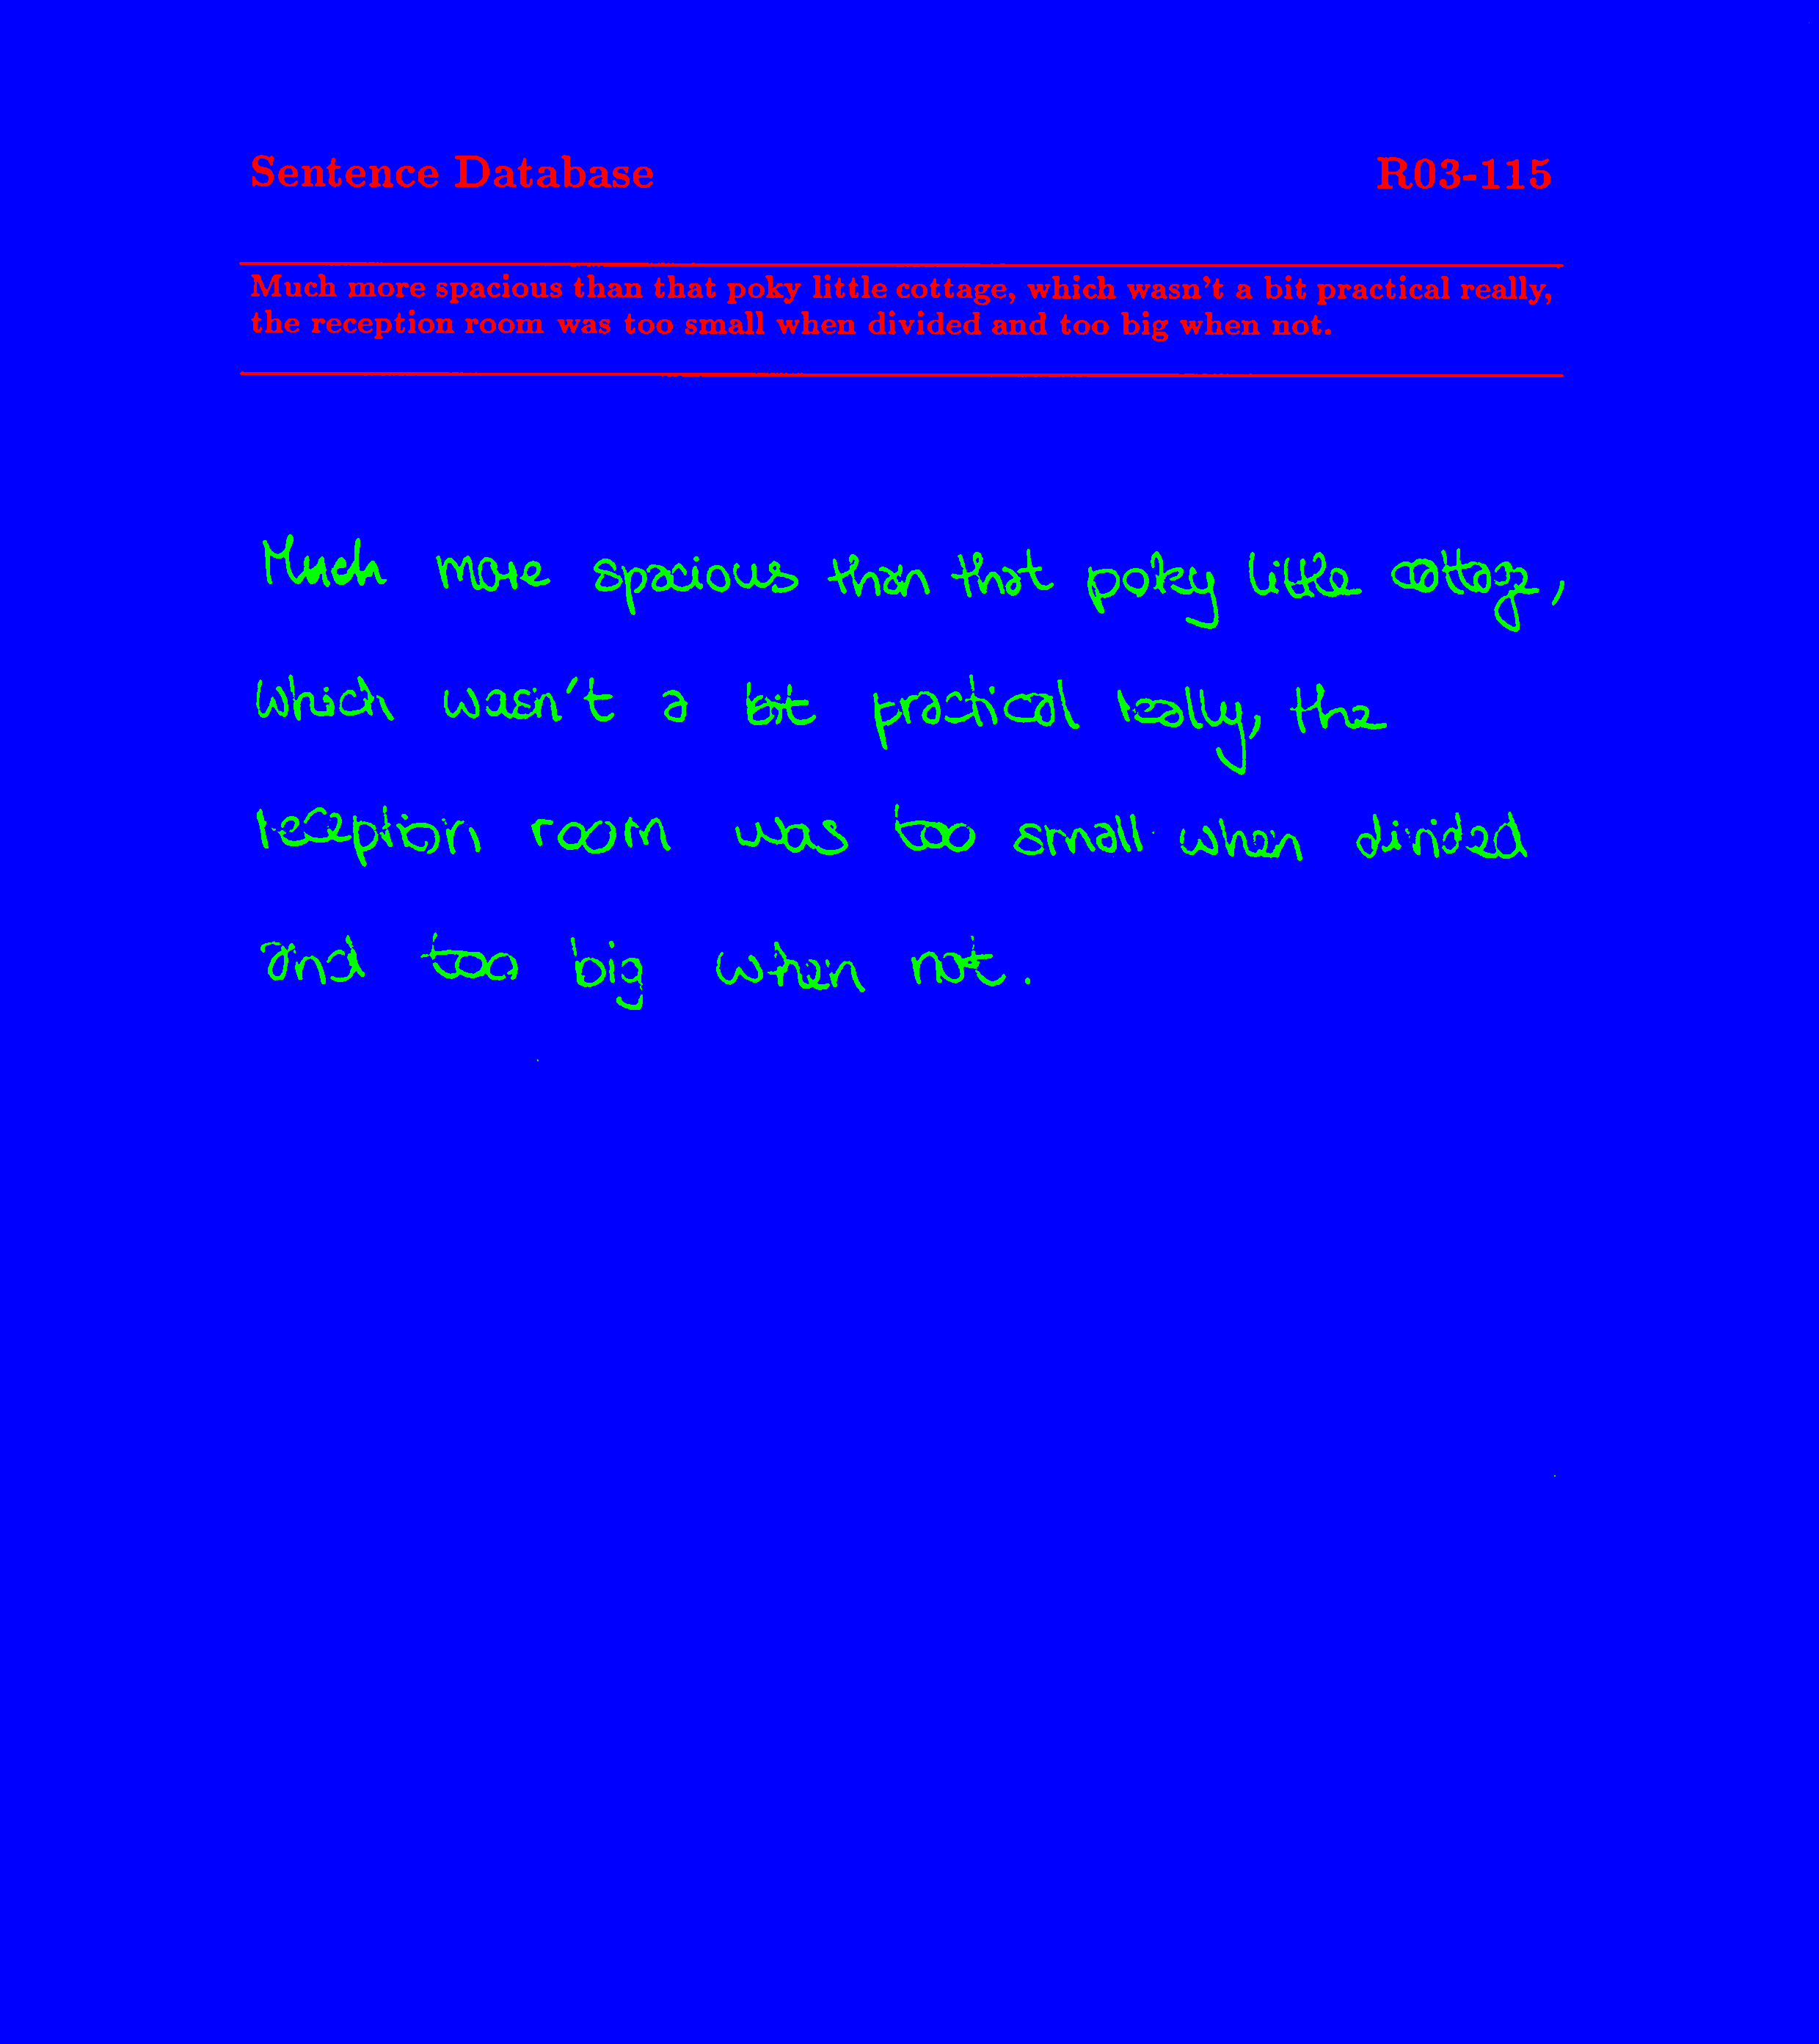 Sentence Database R03-115
Much more spacious than that poky little cottage, which wasn't a bit practical really,
the reception room was too small when divided and too big when not.
Much more spacious than that poky little cottage,
which wasn't a bit practical really, the
reception room was too small when divided
and too big when not.